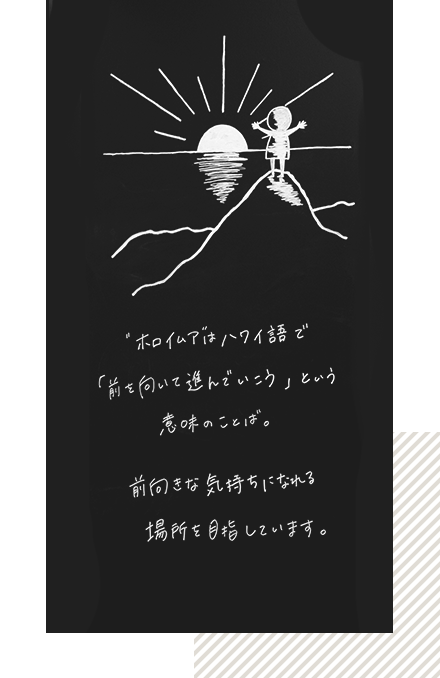 "ホロイムア"はハワイ語で
「前を向いて進んでいこう」という
意味のことば。
前向きな気持ちになれる
場所を目指しています。